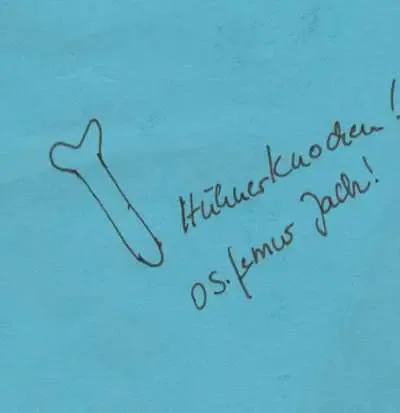 Hühnerknochen!
OS. femur Jach!